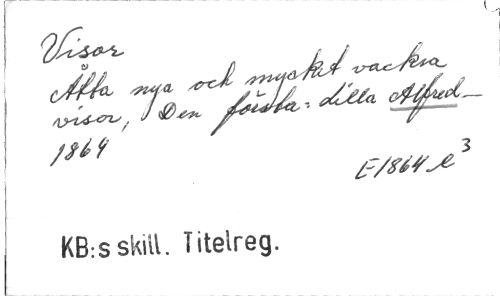 Visor
Åtta nya och mycket vackra
visor, Den första: dilla Alfred_
1864
E1864 e3
KB:s skill. Titelreg.